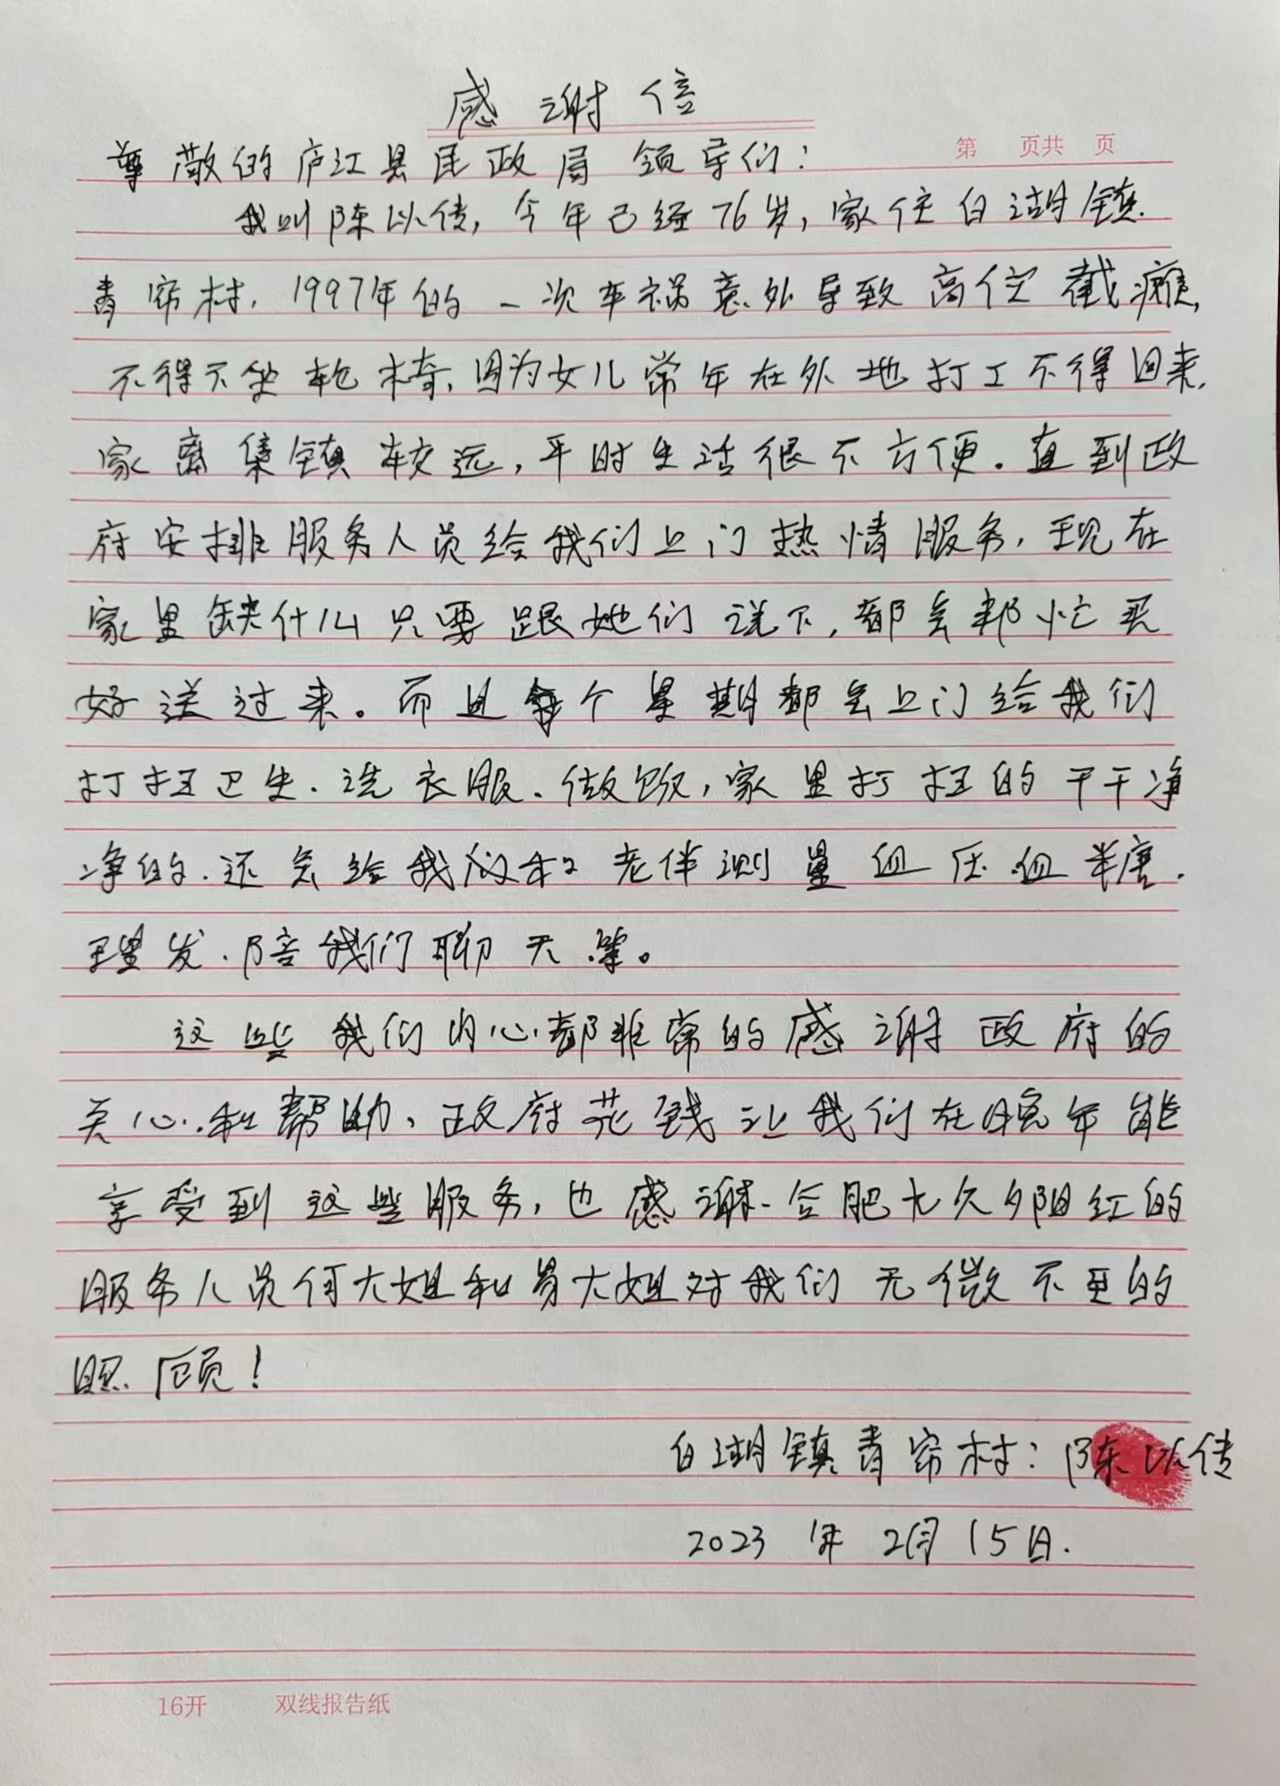 感谢信
第 页共 页
尊敬的庐江县民政局领导们:
我叫陈以传,今年已经76岁,家住白湖镇
青帘村,1997年的一次车祸意外导致高位截瘫,
不得不坐轮椅,因为女儿常年在外地打工不得回来,
家离集镇较远,平时生活很不方便。直到政
府安排服务人员给我们上门热情服务,现在
家里缺什么只要跟她们说下,都会帮忙买
好送过来。而且每个星期都会上门给我们
打扫卫生、洗衣服、做饭,家里打扫的干干净
净的,还会给我们和老伴测量血压血糖、
理发、陪我们聊天等。
这些我们内心都非常的感谢政府的
关心和帮助、政府花钱让我们在晚年能
享受到这些服务,也感谢合肥九久夕阳红的
服务人员何大姐和大姐对我们无微不至的
照顾!
白湖镇青帘村:陈以传
2023年2月15日.
16开 双线报告纸